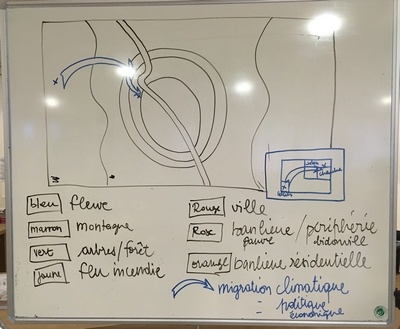 bleu fleuve
marron montagne
vert arbres/forêt
jaune feu incendie
Rouge ville
Rose banlieue / périphérie
pauvre bidonville
orange banlieue résidentielle
migration climatique
= politique
économique